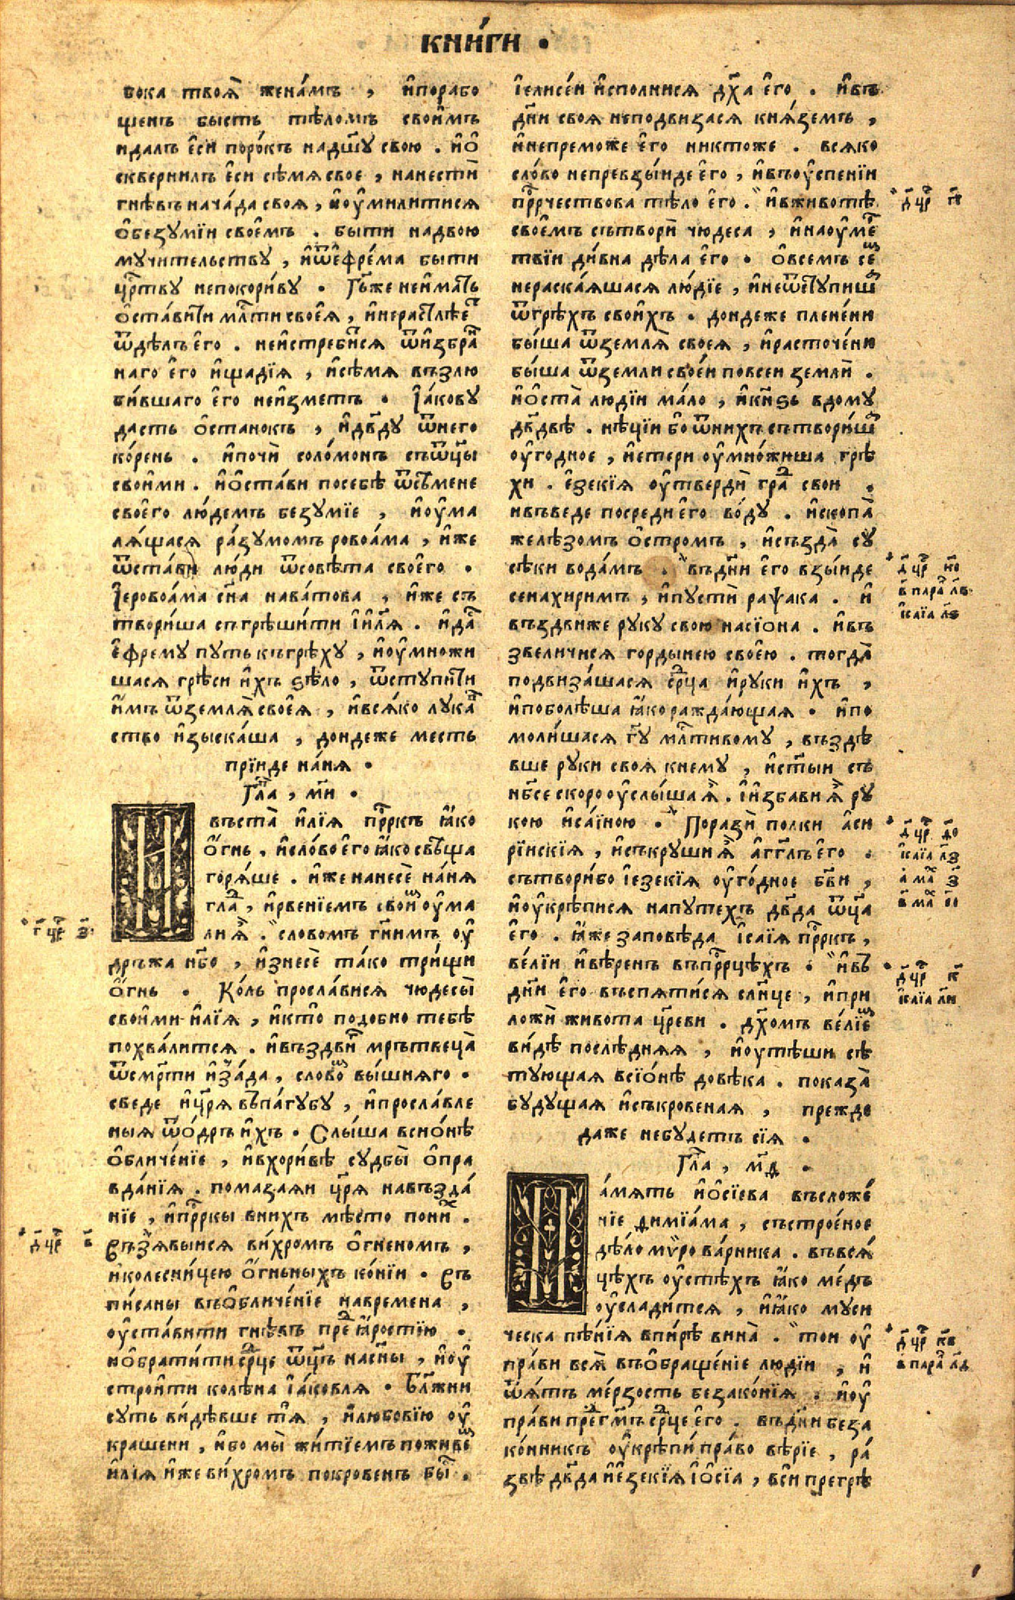 КНИ́ГИ .
бока твоѧ̀ жена́мъ , и҆порабо
щенъ бысть тѣломъ свои҆мъ
идалъ є҆си поро́къ надш҃у свою . ио҆
сквернилъ є҆си сѣмѧ свое , нанести́
гнѣвъ нача́да своѧ , и҆оу҆милитисѧ
о҆безу́мїи своє҆мъ . быти надвою
мучительству , и҆ѿєфре́ма быти
цр҃тву непокори́ву . Гь҃же неи҆мать
о҆ста́вити мл҃ти своеѧ̀ , и҆нерастлѣе
ѿдѣлъ є҆го . неи҆стреби́сѧ ѿи҆збра
наго є҆го и҆щадїѧ , и҆сѣмѧ възлю
би́вшаго є҆го неи҆зметъ . І҆а́кову
дасть о҆станокъ , и҆дв҃ду ѿнего
ко́рень . и҆почи́ соло́монъ съѿц҃ы
свои́ми . и҆о҆ста́ви посебѣ ѿсѣмене
своє҆го лю́демъ безумїе , и҆оу҆ма
лѧ́щасѧ ра́зумомъ ровоа́ма , и҆же
ѿстави̑ лю́ди ѿсовѣ́та своє҆го .
І҆еровоа́ма сн҃а нава́това , и҆же съ
твори́ша съгрѣши́ти і҆и҃лѧ . и҆да
є҆фре́му путь къгрѣ́ху , и҆оу҆мно́жи
шасѧ грѣси и҆хъ ѕѣло , ѿступи́ти
и҆́мъ ѿземлѧ̀ своеѧ̀ , и҆всѧ́ко лука
ство и҆зыска́ша , дондеже месть
прїиде на́нѧ .
Гл҃а , м҃и .
Н
въста̀ и҆лїѧ прр҃къ ꙗ҆ко
о҆гнь , и҆сло́во є҆го ꙗ҆ко свѣща
горѧ́ше . и҆же нанесѐ на́нѧ
гла , и҆рвенїемъ свои́ оу҆ма
ли ѧ҆̀ . словомъ гн҃имъ оу҆
дрьжа нб҃о , и҆знесѐ та́ко три́щи
о҆гнь . Ко́ль просла́висѧ чюдесы́
свои́ми и҆лїѧ , и҆кто̀ подобно тебѣ
похва́литсѧ . и҆въздви́ мрьтвеца̀
ѿсмр҃ти и҆зада , слово вышнѧго .
сведе и҆цр҃ѧ въпа́губу , и҆просла́вле
ныѧ ѿо́дръ и҆хъ . Слы́ша всио́нѣ
о҆бличе́нїе , и҆вхори́вѣ судбы̀ о҆пра
вда́нїѧ . помазаѧи цр҃ѧ навъзда́
нїе , и҆прр҃кы внихъ мѣсто пони́ .
Въззѧвыисѧ ви́хромъ о҆гненомъ ,
и҆колесни́цею о҆гньныхъ ко́нїи . Въ
пи́саны въо҆бличе́нїе навремена ,
оу҆ста́вити гнѣвъ пре ꙗ҆ростїю .
но҆брати́ти ср҃це ѿц҃ъ насн҃ы , и҆оу҆
строи́ти колѣна і҆а́ковлѧ . Бл҃жни
суть ви́дѣвше тѧ̀ , и҆любовїю оу҆
крашени , и҆бо мы̀ жи́тїемъ пожи́ве
и҆лїѧ и҆же ви́хромъ покровенъ бы .
і҆елисе́и и҆сполнисѧ дх҃а є҆го . и҆въ
дн҃и своѧ неподвизасѧ кнѧ́земъ ,
и҆непреможе є҆го никтоже . всѧко
сло́во непревзы́иде є҆го , и҆въоу҆спенїи
прр҃чествова тѣло є҆го . и҆вживотѣ
своє҆мъ сътвори̑ чюдеса , и҆наоу҆ме
твїи ди́вна дѣла є҆го . о҆всемъ се
нераска́ѧшасѧ лю́дїе , и҆неѿступиш
ѿгрѣ́хъ свои́хъ . дондеже пленени
бы́ша ѿземлѧ̀ своеѧ , и҆расточе́ни
бы́ша ѿземли своеи повсеи земли̑ .
и҆о҆ста̀ людїи ма́ло , и҆кн҃ѕь вдому
дв҃двѣ . нѣции бо ѿнихъ сътвори́ш
оу҆годное , и҆етери оу҆мно́жиша грѣ
хи . є҆зекїѧ оу҆тверди̑ гра свои .
ивъведе посреди є҆го во́ду . и҆скопа̀
желѣзомъ о҆стромъ , и҆създа̀ су
сѣки вода́мъ . въдн҃и є҆го взыиде
сенахиримъ , и҆пусти̑ рапсака . и҆
въздвиже руку свою насїона . и҆въ
звели́чисѧ горды́нею своею . тогда̀
подвиза́шасѧ ср҃ца и҆руки и҆хъ ,
и҆поболѣша ꙗ҆ко ражда́ющаѧ . и҆по
моли́шасѧ гу҃ мл҃тивому , въздѣ
вше руки своѧ̀ кнему , и҆ст҃ыи съ
нб҃се скоро оу҆слы́ша ѧ҆̀ . і҆и҆збави ѧ҆̀ ру
кою и҆са́їною . Порази̑ полки а҆си
рїискїѧ , и҆съкруши ѧ҆̀ а҆гг҃лъ є҆го .
сътвори́бо і҆езекїѧ оу҆го́дное бг҃ви ,
и҆оу҆крѣ́писѧ напутехъ дв҃да ѿц҃а
є҆го . ꙗ҆же заповѣда і҆са́їѧ прр҃къ ,
ве́лїи и҆вѣренъ въпрр҃цѣхъ . и҆въ
дн҃и є҆го въспѧ́тисѧ сл҃нце , и҆при
ложи̑ живота цр҃еви . дх҃омъ ве́лїе
ви́дѣ послѣднѧѧ , и҆оутѣши сѣ
тующаѧ всїо́нѣ довѣка . показа̀
будущаѧ и҆съкровенаѧ , прежде
даже небудетъ сїѧ .
Гл҃а , м҃ѳ .
П
а́мѧть и҆о҆сїева въсложе́
нїе димїа́ма , състрое́ное
дѣло мѵ́рова́рника . въвсѧ́
цѣхъ оу҆стѣхъ ꙗ҆ко ме́дъ
оу҆слади́тсѧ , и҆ꙗ҆ко муси
ческа пѣ́нїѧ впи́рѣ вина̀ . тои оу҆
пра́ви всѧ̀ въо҆браще́нїе людїи , и҆
ѿѧ́тъ ме́рзость безако́нїѧ . и҆оу҆
пра́ви прегм҃ъ ср҃це є҆го . въдн҃и беза
ко́нникъ оу҆крѣпи́ пра́во вѣрїе , ра́
звѣ дв҃да и҆є҆зекїѧ і҆о҆сїа , вси прегрѣ